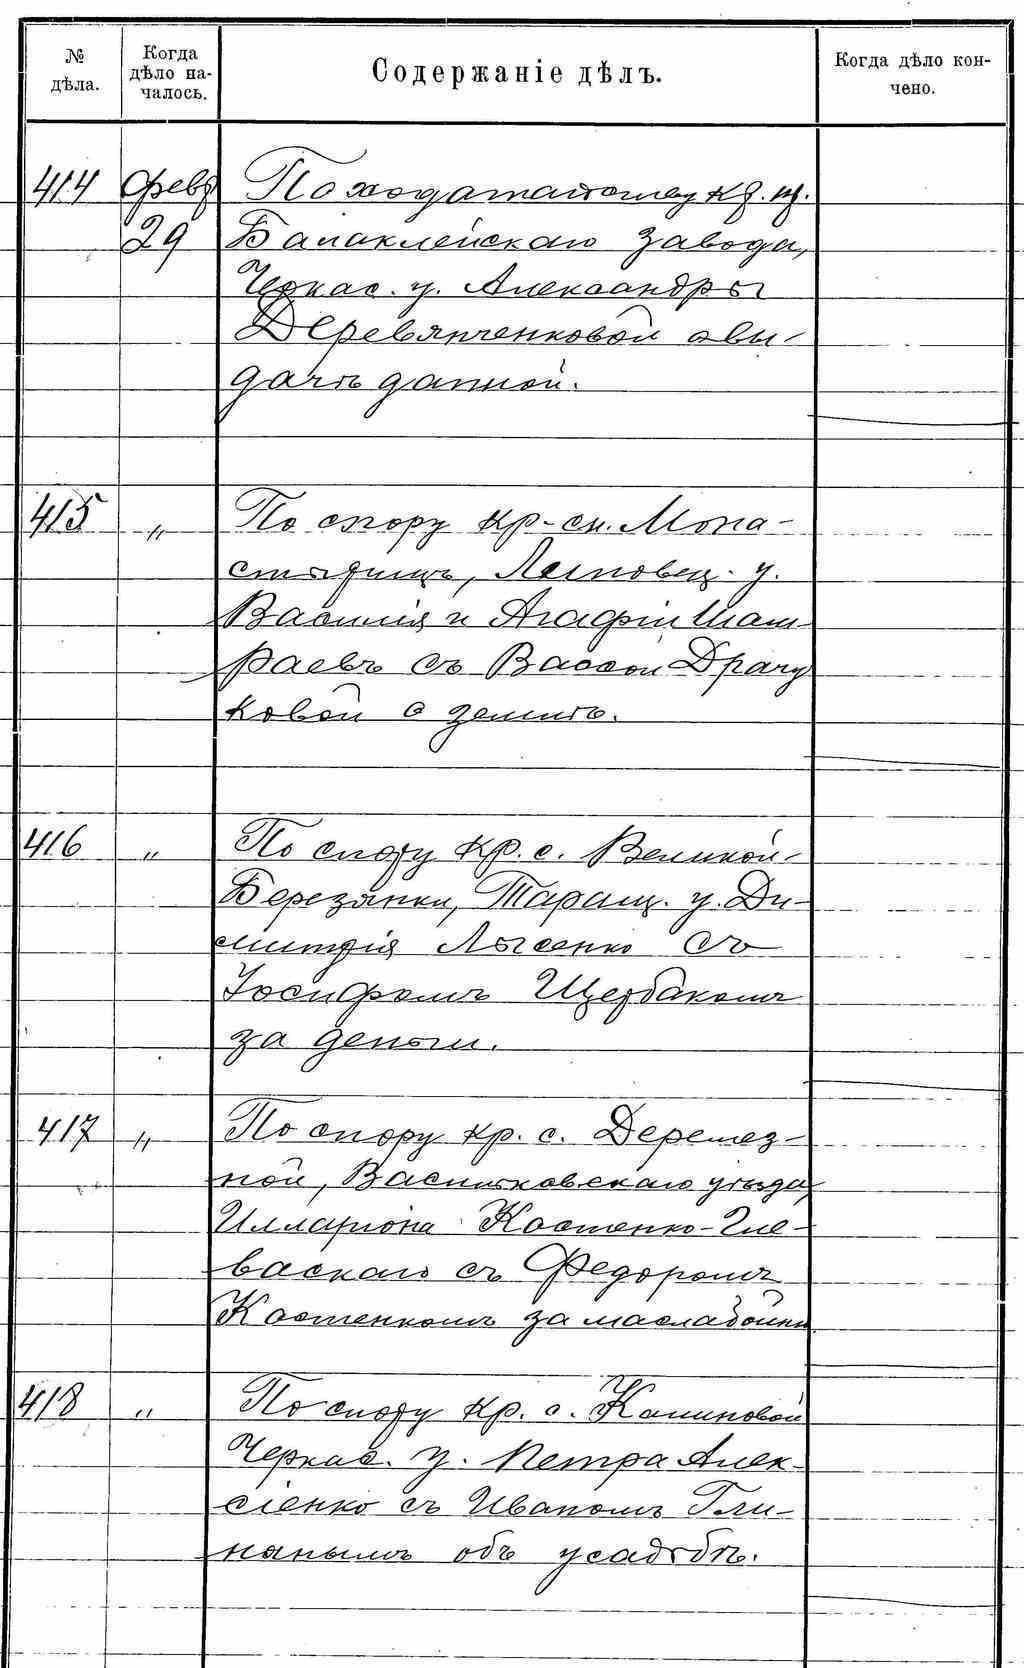 № дѣла.
Когда дѣло на-чалось.
Содержаніе дѣлъ.
Когда дѣло кон-чено.
414 февр По ходатайству кр.
29 Балаклейскаго завода,
Черкас. у. Александры
Деревянченковой о вы-
дачѣ данной.
415 „ По спору кр-сн. Мона-
стырищъ, Липовец. у.
Василія и Агафіи Шам-
раевъ съ Вассой Драчу
ковой о землѣ.
416 „ По спору кр. с. Великой-
Березянки, Таращ. у. Ди-
митрія Лысенко съ
Іосифомъ Щербакомъ
за деньги.
417 „ По спору кр. с. Деремез-
ной, Васильковскаго уѣзда,
Илларіона Костенко-Гле-
васкаго съ Федоромъ
Костенкомъ за маслабойню
418 „ По спору кр. с. Калиновой
Черкас. у. Петра Алек-
сіенко съ Иваномъ Гли-
нанымъ объ усадьбѣ.